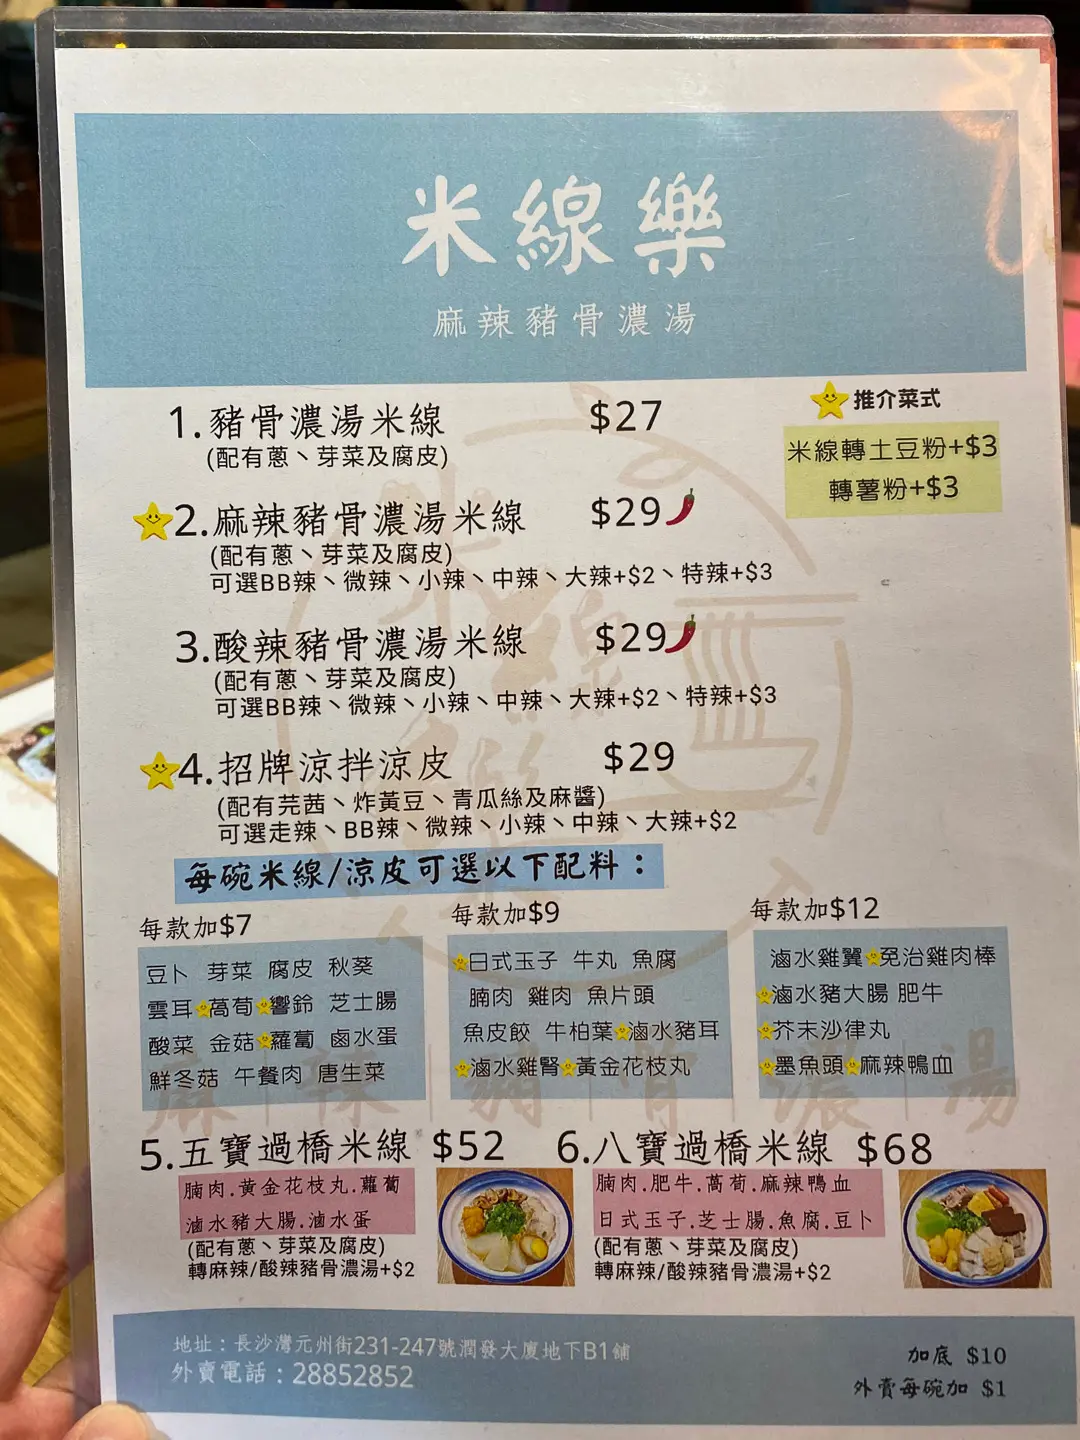 米線樂
麻辣豬骨濃湯
推介菜式
米線轉土豆粉+$3
轉薯粉+$3
1.豬骨濃湯米線 $27
(配有蔥、芽菜及腐皮)
2.麻辣豬骨濃湯米線 $29
(配有蔥、芽菜及腐皮)
可選BB辣、微辣、小辣、中辣、大辣+$2、特辣+$3
3.酸辣豬骨濃湯米線 $29
(配有蔥、芽菜及腐皮)
可選BB辣、微辣、小辣、中辣、大辣+$2、特辣+$3
4.招牌涼拌涼皮 $29
(配有芫茜、炸黃豆、青瓜絲及麻醬)
可選走辣、BB辣、微辣、小辣、中辣、大辣+$2
每碗米線/涼皮可選以下配料：
每款加$7
豆卜 芽菜 腐皮 秋葵
雲耳 萵筍 響鈴 芝士腸
酸菜 金菇 蘿蔔 鹵水蛋
鮮冬菇 午餐肉 唐生菜
每款加$9
日式玉子 牛丸 魚腐
腩肉 雞肉 魚片頭
魚皮餃 牛柏葉 滷水豬耳
滷水雞腎 黃金花枝丸
每款加$12
滷水雞翼 免治雞肉棒
滷水豬大腸 肥牛
芥末沙律丸
墨魚頭 麻辣鴨血
麻辣豬骨濃湯
5.五寶過橋米線 $52
腩肉.黃金花枝丸.蘿蔔
滷水豬大腸.滷水蛋
(配有蔥、芽菜及腐皮)
轉麻辣/酸辣豬骨濃湯+$2
6.八寶過橋米線 $68
腩肉.肥牛.萵筍.麻辣鴨血
日式玉子.芝士腸.魚腐.豆卜
(配有蔥、芽菜及腐皮)
轉麻辣/酸辣豬骨濃湯+$2
地址：長沙灣元州街231-247號潤發大廈地下B1舖
外賣電話：28852852
加底 $10
外賣每碗加 $1